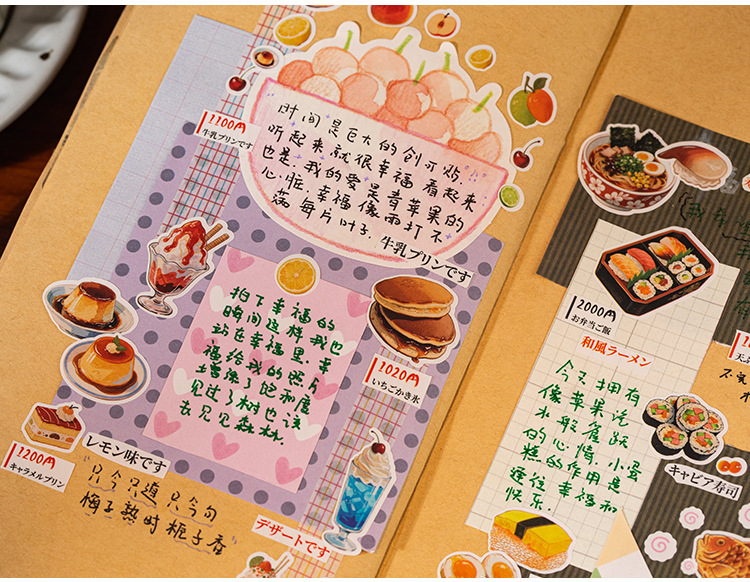 1100円
牛乳プリンです
"时间是巨大的创可贴"
听起来就很幸福 看起来
也是.我的爱是青苹果的
心脏.幸福像雨打不
满每片叶子.
牛乳プリンです
拍下幸福的
瞬间这样我也
站在幸福里.幸
福给我的照片
增添了饱和度
见过了树也该
去见见森林.
1020円
いちごかき氷
レモン味です
1200円
キャラメルプリン
"只今只道只今句
梅子熟时栀子香"
デザートです
2000円
お弁当ご飯
和風ラーメン
今天拥有
像苹果汽
水般雀跃
的心情,小蛋
糕的作用是
通往幸福和
快乐.
キャビア寿司